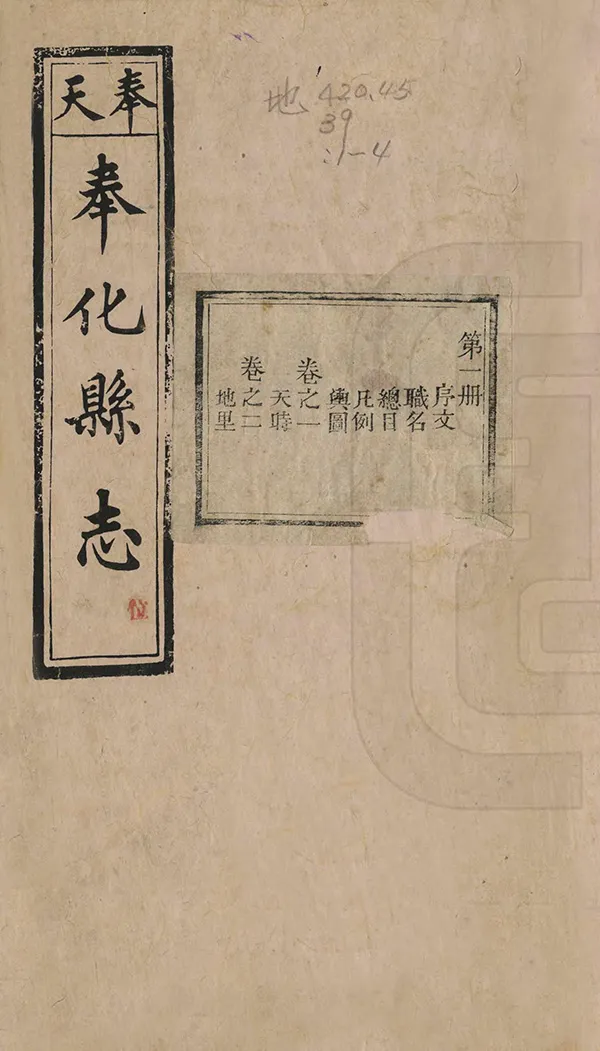 奉天
奉化縣志
地 420.45
39
:1-4
第一册
序文
職名
總目
凡例
輿圖
卷之一
天時
卷之二
地里